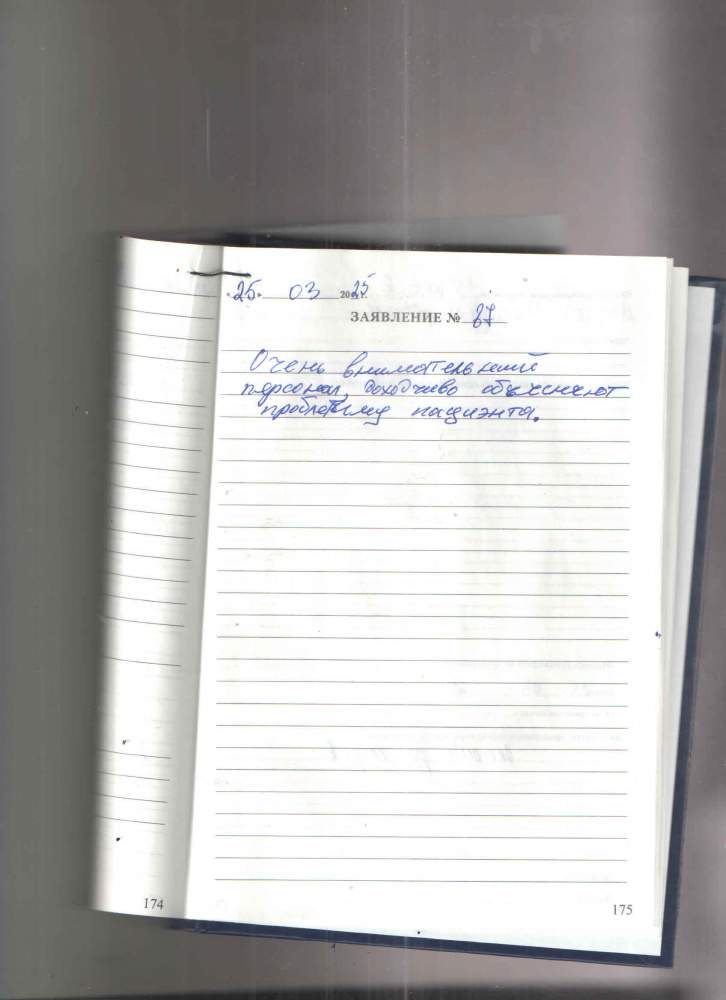 «25» 03 2025 г.
ЗАЯВЛЕНИЕ № 87
Очень внимательный
персонал, доходчиво объясняют
проблему пациэнта.
174
175